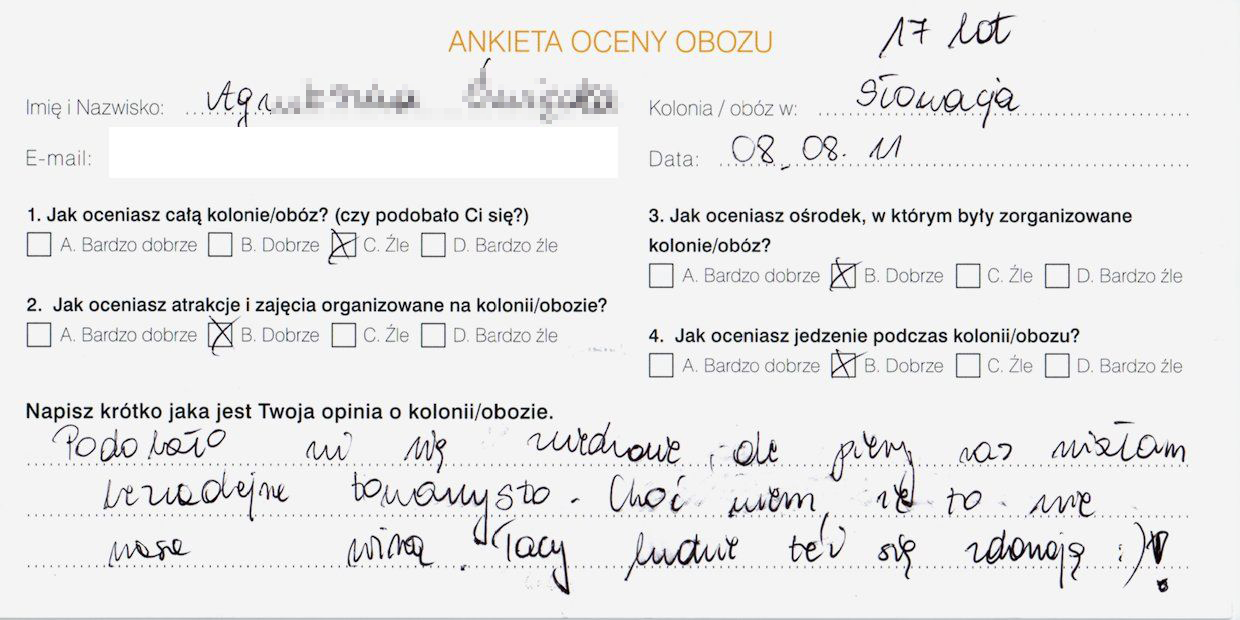 ANKIETA OCENY OBOZU
17 lat
Imię i Nazwisko:
Kolonia / obóz w: Słowacja
E-mail:
Data: 08.08.11
1. Jak oceniasz całą kolonie/obóz? (czy podobało Ci się?)
A. Bardzo dobrze B. Dobrze C. Źle D. Bardzo źle
2. Jak oceniasz atrakcje i zajęcia organizowane na kolonii/obozie?
A. Bardzo dobrze B. Dobrze C. Źle D. Bardzo źle
3. Jak oceniasz ośrodek, w którym były zorganizowane
kolonie/obóz?
A. Bardzo dobrze B. Dobrze C. Źle D. Bardzo źle
4. Jak oceniasz jedzenie podczas kolonii/obozu?
A. Bardzo dobrze B. Dobrze C. Źle D. Bardzo źle
Napisz krótko jaka jest Twoja opinia o kolonii/obozie.
Podobało mi się, ale pierwszy raz miałam
beznadejne towarzysto. Choć wiem, że to nie
nasza wina. Tacy ludzie też się zdarzają :)!